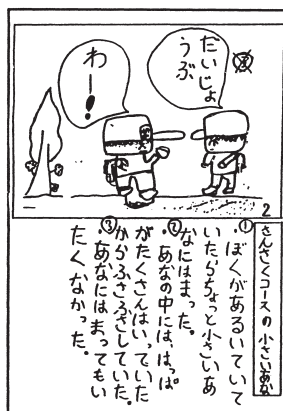 だいじょ
うぶ
わー!
2
さんさくコースの小さいあな
①・ぼくがあるいていて
いたらちょっと小さいあ
なにはまった。
②・あなの中には、はっぱ
がたくさんはいっていた
からふさふさしていた。
③・あなにはまってもい
たくなかった。